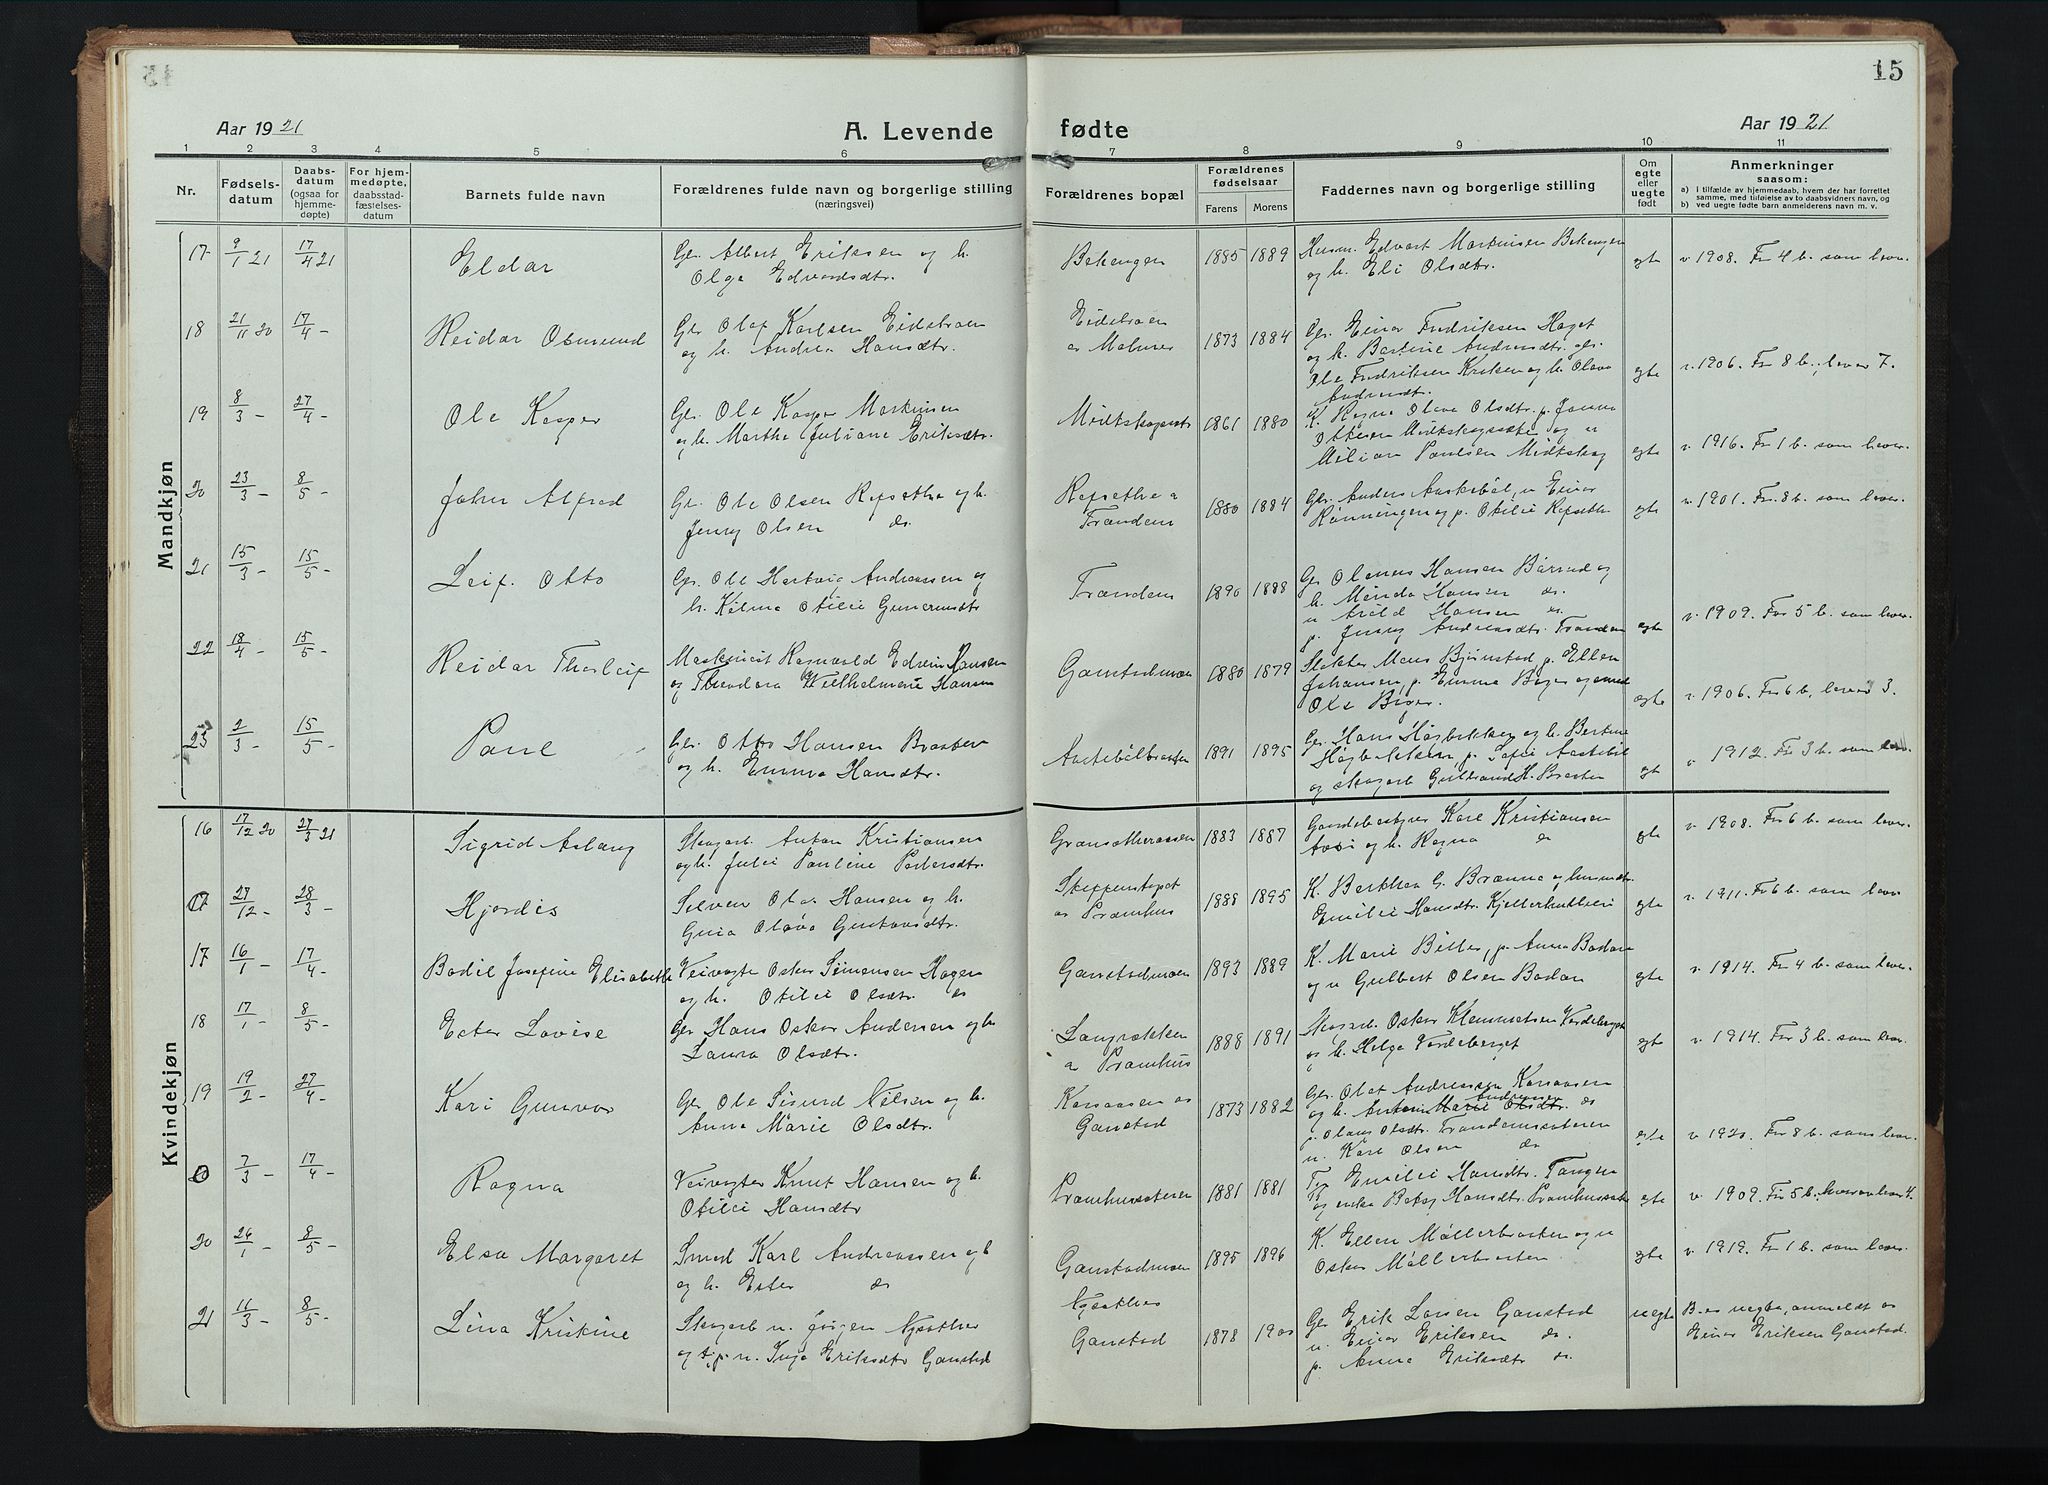 15
Aar 1921
A. Levende fødte
Aar 1921
1 2 3 4 5 6 7 8 9 10 11
Nr.
Fødsels-
datum
Daabs-
datum
(ogsaa for
hjemme-
døpte)
For hjem-
medøpte,
daabsstad-
fæstelses-
datum
Barnets fulde navn
Forældrenes fulde navn og borgerlige stilling
(næringsvei)
Forældrenes bopæl
Forældrenes
fødselsaar
Farens Morens
Faddernes navn og borgerlige stilling
Om
egte
eller
uegte
født
Anmerkninger
saasom:
a) I tilfælde av hjemmedaab, hvem der har forrettet
samme, med tilføielse av to daabsvidners navn, og
b) ved uegte fødte barn anmelderens navn m. v.
Mandkjøn
17 9/1 21 17/4 21 Eldar
Gr. Albert Eriksen og h.
Olga Edvardsdtr.
Bekengen 1885 1889
Husm. Edvart Martinsen Bekengen
og h. Eli Olsdtr.
egte v. 1908. Før 4 b. som lever.
18 21/11 20 17/4 - Reidar Osmund
Gr. Olaf Karlsen Eidsbraen
og h. Andrea Hansdtr.
Eidsbraen
1873 1884
Gr. Einar Fredriksen Haget
og h. Bertine Andreasdtr. gr.
Ole Fredriksen og h. Olava
egte v. 1906. Før 8 b., lever 7.
19 8/3 - 27/4 - Ole Kasper
Gr. Ole Kasper Martinsen
og h. Marthe Juliane Eriksdtr.
1861 1880
K. Ragna Olava Olsdtr. p. Jenny
Milian Paulsen Midtskog
egte v. 1916. Før 1 b. som lever.
20 23/3 - 8/5 - John Alfred
Gr. Ole Olsen Repsethe og h.
Jenny Olsen do.
Repsethe a
Trandem
1880 1884
Gr. Anders Aastebøl, u. Einar
Rønningen og p. Otilie Repsethe
egte v. 1901. Før 8 b. som lever.
21 15/3 - 15/5 - Leif Otto
Gr. Ole Hartvig Andreassen og
h. Hilma Otilie Guneriusdtr.
Trandem 1890 1888
Gr. Olenus Hansen Børrud og
h. Minda Hansen do.
u. Arild Hansen do.
p. Jenny Andreasdtr. Trandem
egte v. 1909. Før 5 b. som lever.
22 18/4 - 15/5 - Reidar Thorleif
Maskinist Ragnvald Edvin Hansen
og Theodora Vilhelmine Hansen
Ganstadmoen 1880 1879
Slakter Mons Bjørnstad, p. Ellen
Johansen, p. Emma Berger og
Ole Berger.
egte v. 1906. Før 6 b., lever 3.
23 2/3 - 15/5 - Paul
Gr. Otto Hansen Braaten
og h. Emma Hansdtr.
Aastebølbraaten 1891 1895
Gr. Hans Høgbakken og h. Bertine
Høgbakken, p. Sofie Aastebøl
og skogarb. Gulbrand H. Braaten
egte v. 1912. Før 3 b. som lever.
Kvindekjøn
16 17/12 20 27/3 21 Sigrid Aslaug
Skogarb. Anton Kristiansen
og h. Julie Pauline Pedersdtr.
1883 1887
Gaardsbestyrer Karl Kristiansen
og h. Ragna do
egte v. 1908. Før 6 b. som lever.
27/12 - 28/3 - Hjordis
Olaf Hansen og h.
Gina Olava Gustavsdtr.
Skeppenstøpet
a. Pramhus
1888 1895
K. Berthea G. Brænne og husmdtr.
Emilie Hansdtr.
egte v. 1911. Før 6 b. som lever
17 16/1 - 17/4 - Bodil Josefine Elisabeth
Veivogter Oskar Simensen Hagen
og h. Otilie Olsdtr. do
Ganstadmoen 1893 1889
K. Marie Bitter, p. Anna Badan
og u. Gulbert Olsen Badan
egte v. 1914. Før 4 b. som lever.
18 17/1 - 8/5 - Ester Lovise
Gr. Hans Oskar Andersen og h.
Laura Olsdtr.
Langrækken
a Pramhus
1888 1891
Skogarb. Oskar Klemmetsen Vardeberget
og h. Helga Vardeberget
egte v. 1914. Før 3 b. som lever.
19 19/2 - 27/4 - Kari Gunvor
Gr. Ole Sigurd Nilsen og h.
Anna Marie Olsdtr.
Korsaasen a
Ganstad
1873 1882
Gr. Olaf Andreassen Korsaasen
og h. Marie Olsdtr. do
p. Olava Olsdtr. Trandemsæteren
u. Karl Olsen do
egte v. 1920. Før 8 b. som lever.
7/3 - 17/4 - Ragna
Veivogter Knut Hansen og h.
Otilie Hansdtr.
Pramhussæteren 1881 1881
Tp. Emilie Hansdtr. Tangen
og enke Betsy Hansdtr. Pramhussæter
egte v. 1909. Før 5 b. hvorav lever 4.
20 26/1 - 8/5 - Elsa Margaret
Smed Karl Andreassen og h
og h. Ester do
Ganstadmoen 1895 1896
K. Ellen Møllerbraaten og u
Oskar Møllerbraaten
egte v. 1919. Før 1 b. som lever.
21 11/3 - 8/5 - Lina Kristine
Skogarb. u. Jørgen Nysethre
og tp. u. Inga Eriksdtr. Ganstad
Nysethre
Ganstad
1878 1900
Gr. Erik Larsen Ganstad
u. Einar Eriksen do.
p. Anna Eriksdtr. do.
uegte
B. er uegte, anmeldt av
Einar Eriksen Ganstad.